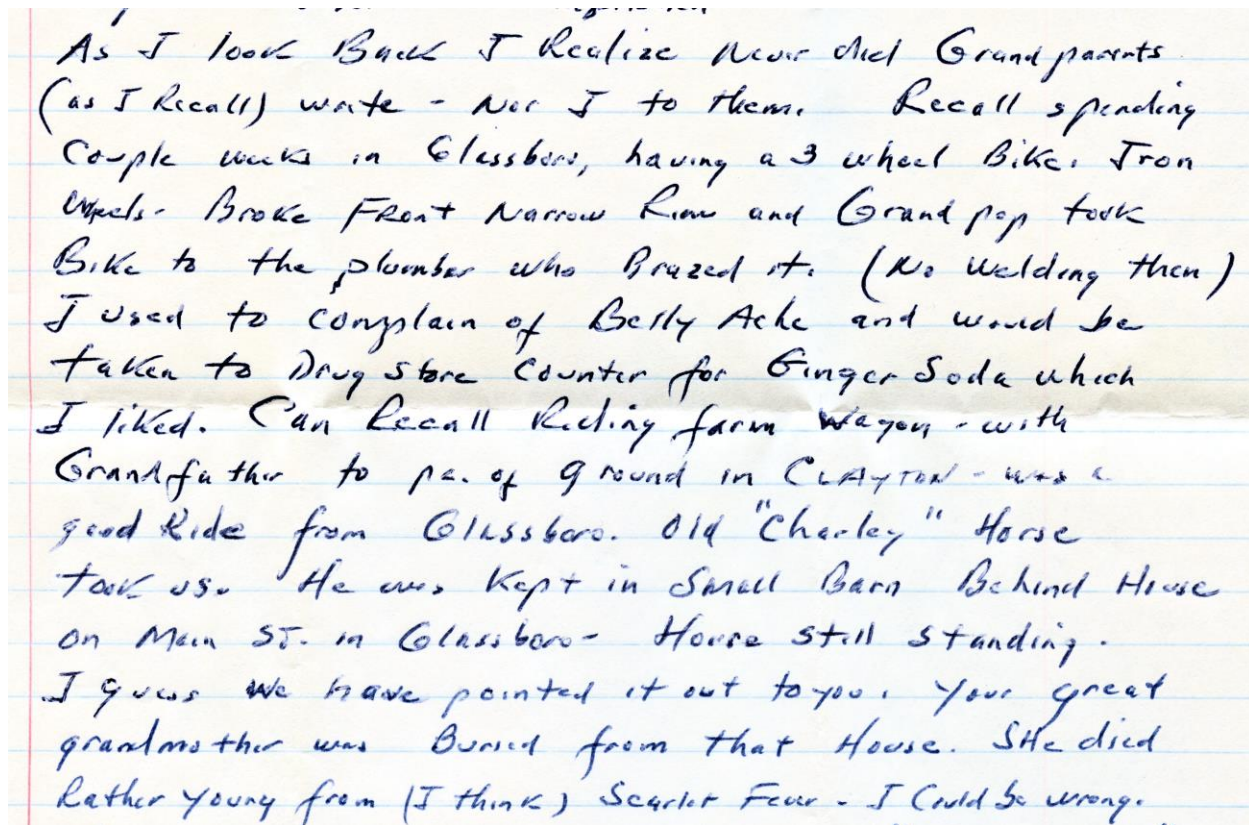 As I look Back I Realize Never did Grandparents
(as I Recall) write - Nor I to them. Recall spending
Couple weeks in Glassboro, having a 3 wheel Bike. Iron
Wheels. Broke Front Narrow Rim and Grandpop took
Bike to the plumber who Brazed it. (No Welding then)
I used to complain of Belly Ache and would be
taken to Drug Store Counter for Ginger Soda which
I liked. Can Recall Riding farm Wagon - with
Grandfather to pc. of ground in CLAYTON - was a
good Ride from Glassboro. Old "Charley" Horse
took us. He was Kept in Small Barn Behind House
on Main ST. in Glassboro - House still standing.
I guess We have pointed it out to you. Your great
grandmother was Buried from that House. SHe died
Rather Young from (I think) Scarlet Fever - I Could be wrong.